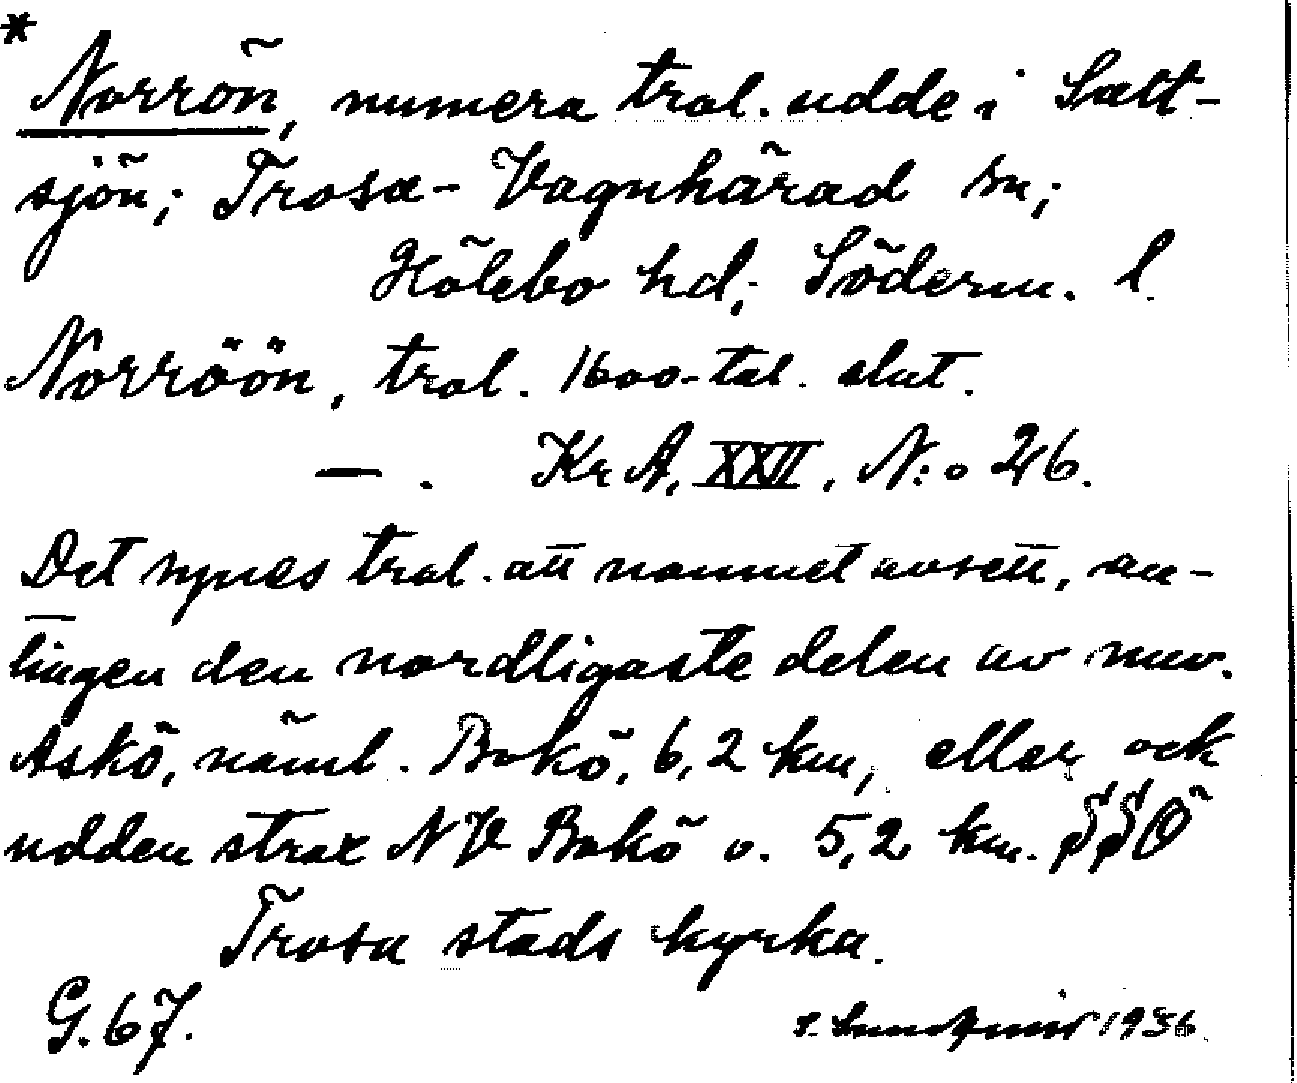 * Norrön, numera trol. udde i Salt-
sjön; Trosa-Vagnhärad sn;
Hölebo hd; Söderm. l.
Norröön, trol. 1600-tal. slut.
— . Kr A, XXII, N:o 26.
Det synes trol. att namnet avsett, an-
tingen den nordligaste delen av nuv.
Askö, näml. Bokö, 6,2 km, eller ock
udden strax NV Bokö o. 5,2 km. SSÖ
Trosa stads kyrka.
G. 67. 1936.